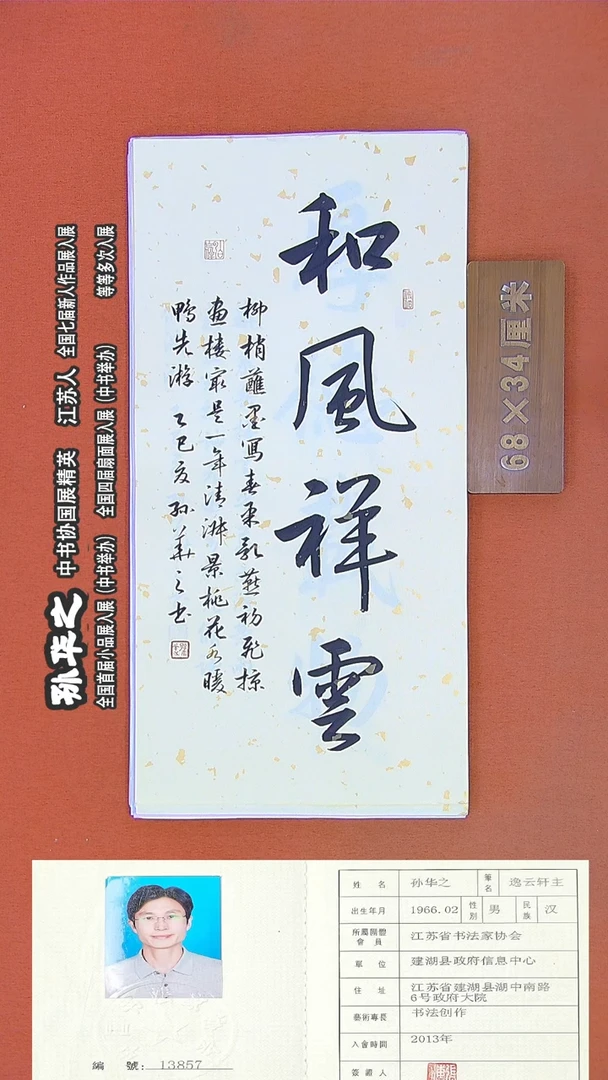 和風祥雲
柳梢蘸墨寫春来影燕初飛掠
画楼最是一年清淑景桃花水暖
鴨先游 乙巳夏 孙華之书
68×34厘米
孙华之 中书协国展精英 江苏人 全国七届新人作品展入展
全国首届小品展入展(中书举办) 全国四届扇面展入展(中书举办) 等等多次入展
编 號: 13857
姓 名 孙华之 筆名 逸云轩主
出生年月 1966.02 性別 男 民族 汉
所屬團體會員 江苏省书法家协会
單 位 建湖县政府信息中心
住 址 江苏省建湖县湖中南路
6号政府大院
藝術專長 书法创作
入會時間 2013年
簽證人